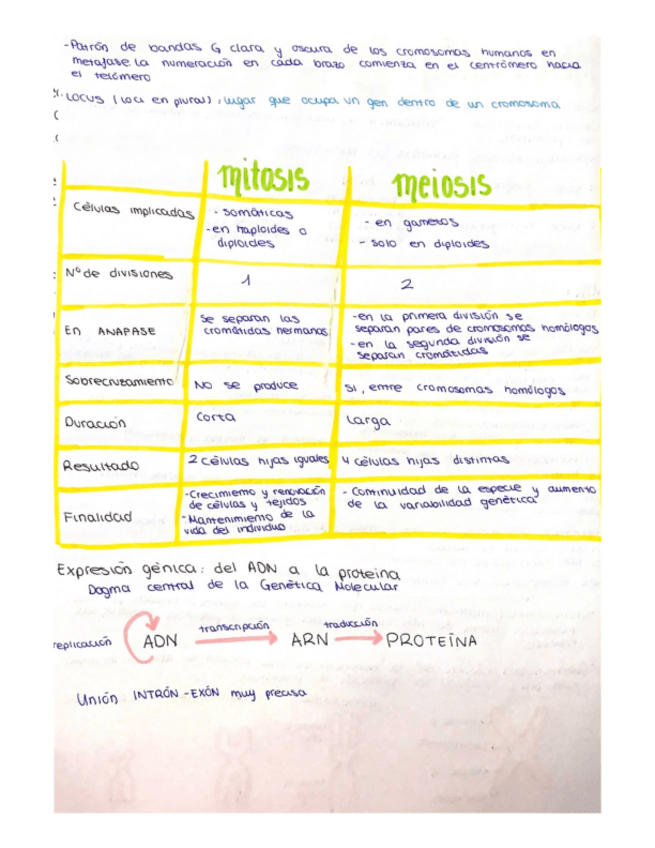 -Patrón de bandas G clara y oscura de los cromosomas humanos en
metafase. La numeración en cada brazo comienza en el centrómero hacia
el telómero
LOCUS (loci en plural), lugar que ocupa un gen dentro de un cromosoma
mitosis meiosis
Células implicadas
- somáticas
- en haploides o
diploides
- en gametos
- solo en diploides
Nº de divisiones 1 2
En ANAFASE
Se separan las
cromátidas hermanas
-en la primera división se
separan pares de cromosomas homólogos
-en la segunda división se
separan cromátidas
Sobrecruzamiento No se produce Si, entre cromosomas homólogos
Duración Corta Larga
Resultado 2 células hijas iguales 4 células hijas distintas
Finalidad
-Crecimiento y renovación
de células y tejidos
-Mantenimiento de la
vida del individuo
- Continuidad de la especie y aumento
de la variabilidad genética
Expresión génica: del ADN a la proteína
Dogma central de la Genética Molecular
transcripción traducción
replicación ADN ARN PROTEÍNA
Unión INTRÓN-EXÓN muy precisa